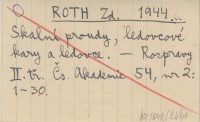 ROTH Zd. 1944...
Skalní proudy, ledovcové
kary a ledovce. — Rozpravy
II. tř. Čs. Akademie 54, nr 2:
1-30.